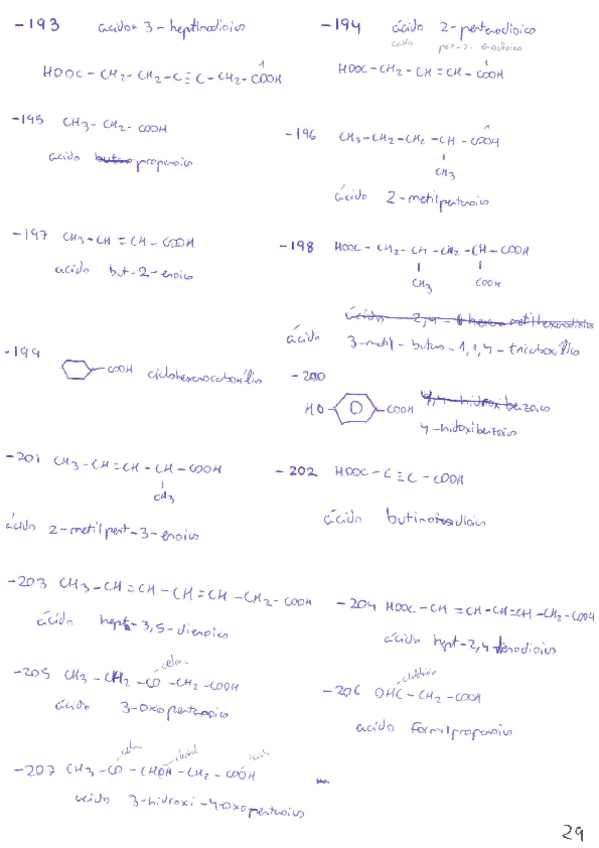 -193 acido 3-heptinodioico
1
HOOC-CH2-CH2-C≡C-CH2-COOH
-194 ácido 2-pentenodioico
acido pent-2-enodioico
1
HOOC-CH2-CH=CH-COOH
-195 CH3-CH2-COOH
acido propanoico
-196 CH3-CH2-CH2-CH-COOH
CH3
ácido 2-metilpentanoico
-197 CH3-CH=CH-COOH
acido but-2-enoico
-198 HOOC-CH2-CH-CH2-CH-COOH
CH3 COOH
ácido 2,4- metilhexanodioico
ácido 3-metil-butano-1,1,4-tricarboxílico
-199 COOH ciclohexanocarboxílico
-200
HO- -COOH 4,4-hidroxibenzoico
4-hidroxibenzoico
-201 CH3-CH=CH-CH-COOH
CH3
ácido 2-metilpent-3-enoico
-202 HOOC-C≡C-COOH
ácido butinodioico
-203 CH3-CH=CH-CH=CH-CH2-COOH
ácido hept-3,5-dienoico
-204 HOOC-CH=CH-CH=CH-CH2-COOH
ácido hept-2,4-dienodioico
cetona
-205 CH3-CH2-CO-CH2-COOH
ácido 3-oxopentanoico
aldehído
-206 OHC-CH2-COOH
acido formilpropanoico
cetona alcohol ácido
-207 CH3-CO-CHOH-CH2-COOH
acido 3-hidroxi-4-oxopentanoico
29